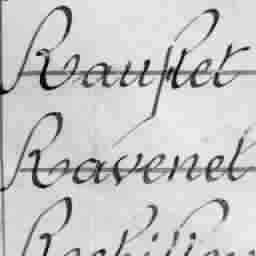 Rauflet
Ravenel